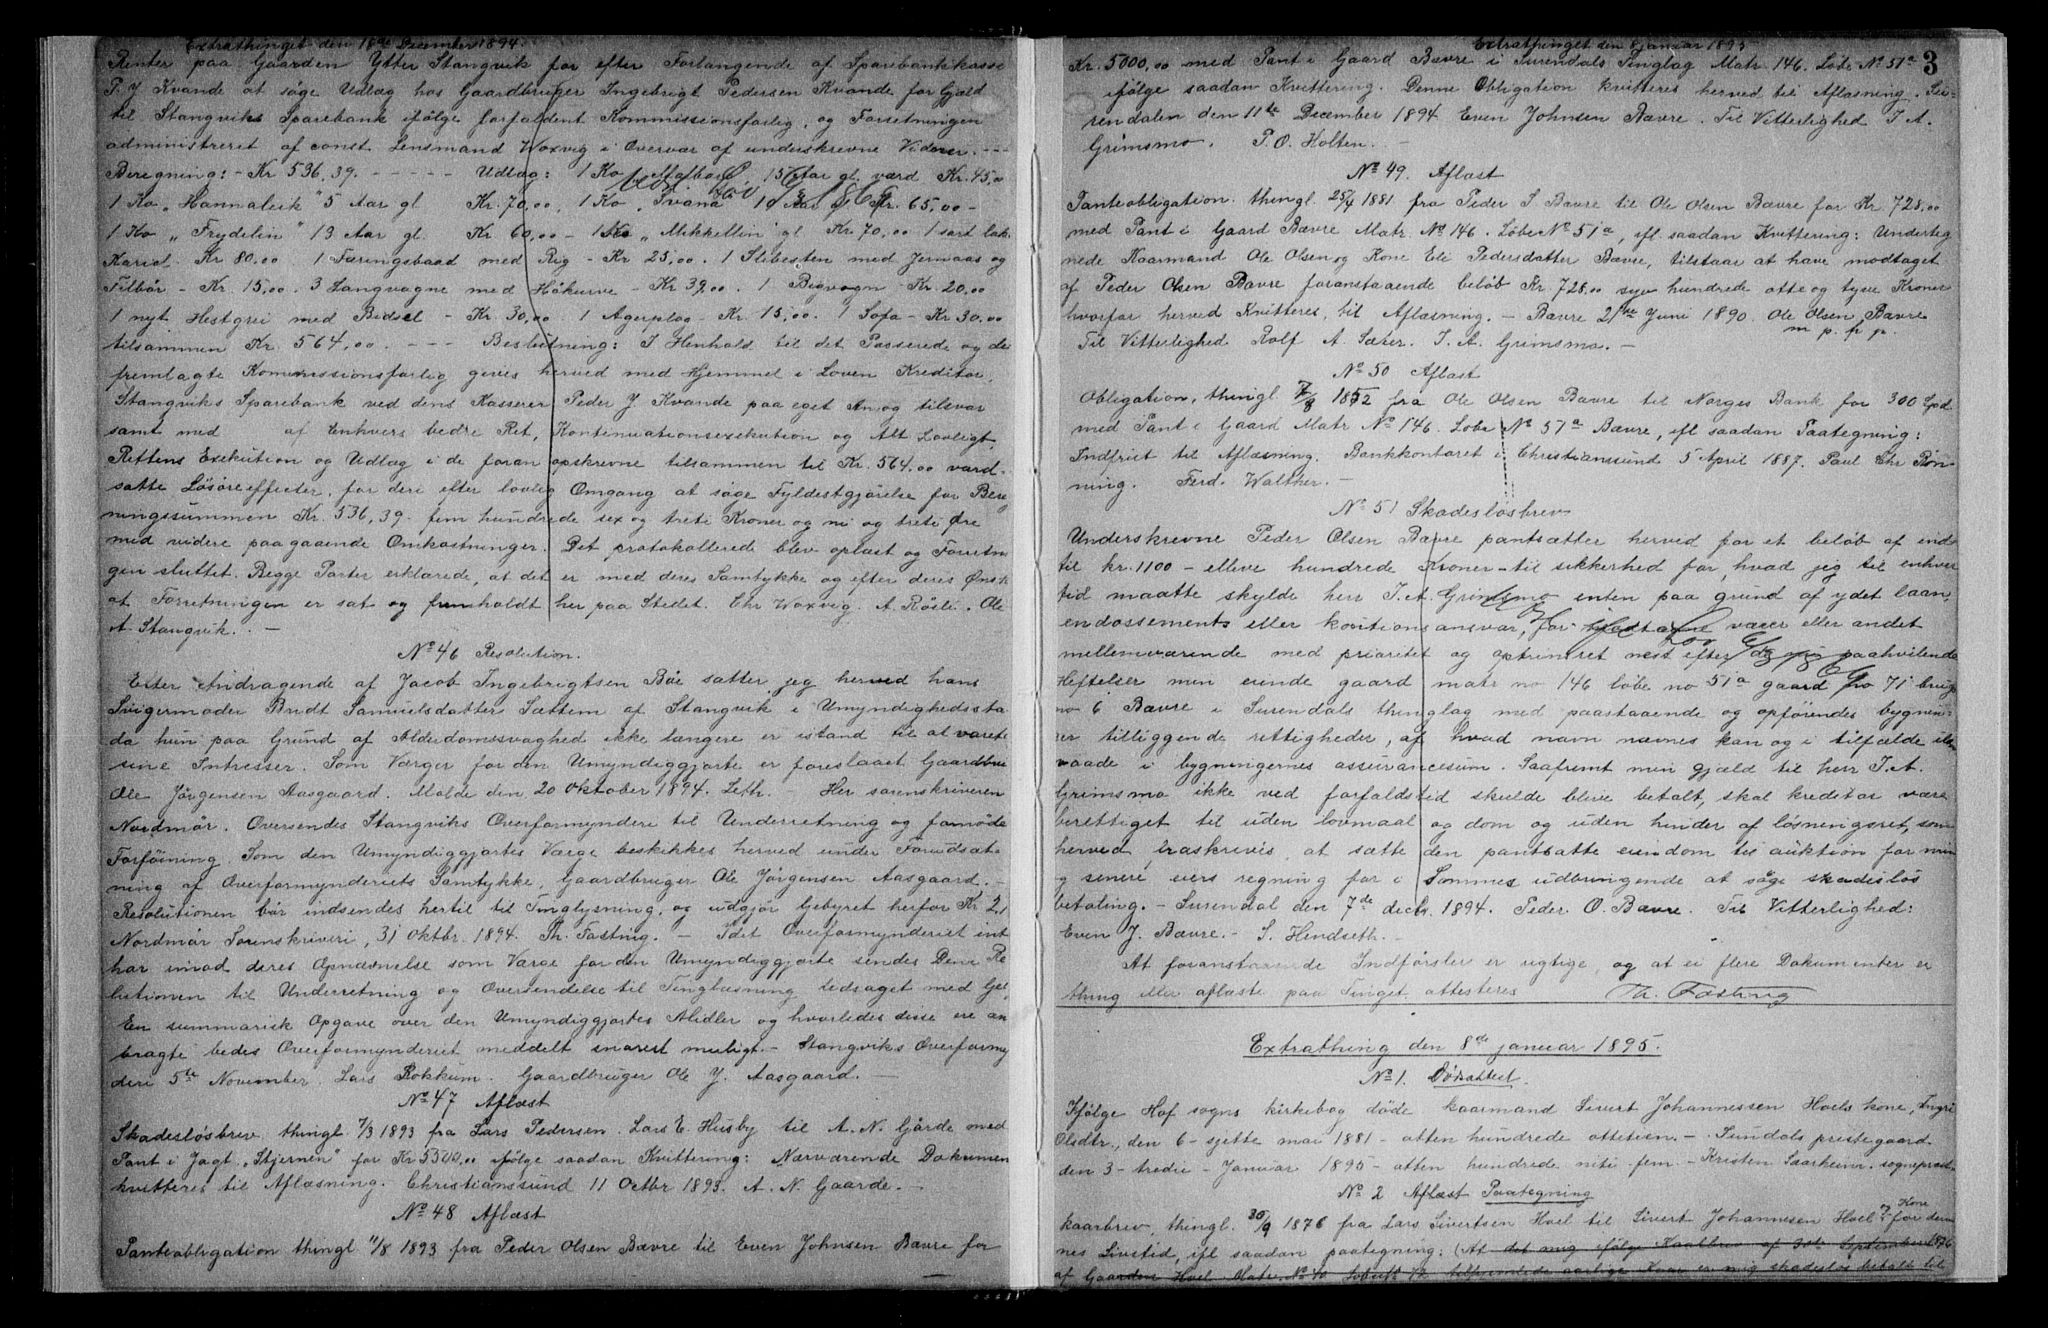 Extrathinget den 18de December 1894.
Renter paa Gaarden Ytter Stangvik for efter Forlangende af Sparebankkasse
P. J. Kvande at søge Udlæg hos Gaardbruger Ingebrigt Pedersen Kvande for Gjæld
til Stangviks Sparebank ifølge forfaldent Kommissionsforlig, og Forretningen
administreret af const. Lensmand Woxvig i Overvær af underskrevne Vidner. ---
Beregning: - Kr 536,39. ----- Udlæg: 1 Ko 15 Aar gl. værd Kr. 45,00
1 Ko „Hannaleik" 5 Aar gl Kr. 70,00, 1 Ko 10 Aar gl Kr. 65,00 -
1 Ko „Frydelin" 13 Aar gl. Kr 60,00 - 1 Ko „Mikkellin" gl. Kr. 70,00 1 sort
Kr 80,00 1 Færingsbaad med Rig - Kr 25,00. 1 med og
Tilbør - Kr. 15,00. 3 Langvogne med Høkurve - Kr 39,00. 1 - Kr. 20,00
1 nyt Hestgrei med Bidsel - Kr 30,00. 1 Agerplog - Kr. 15,00. 1 Sofa - Kr 30.00
tilsammen Kr. 564,00. --- Beslutning: I Henhold til det Passerede og de
fremlagte Kommissionsforlig gives herved med Hjemmel i Loven Kreditor,
Stangviks Sparebank ved dens Kasserer Peder J Kvande paa eget An og tilsvar
samt med af Enhvers bedre Ret, Kontinuationsexekution og Alt Lovligt,
Rettens Exekution og Udlæg i de foran opskrevne tilsammen til Kr. 564,00 værd-
satte Løsøreeffecter, for deri efter lovlig Omgang at søge Fyldestgjørelse for Bereg
ningssummen Kr. 536,39 fem hundrede sex og treti Kroner og ni og treti Øre
med videre paagaaende Omkostninger. Det protokollerede blev oplæst og Forretnin
gen sluttet. Begge Parter erklærede, at det er med deres Samtykke og efter deres Ønske
at Forretningen er sat og fremholdt her paa Stedet. Chr Woxvig. A. Røsli. Ole
A. Stangvik. -
No 46 Resolution.
Efter Andragende af Jacob Ingebrigtsen Bøe sætter jeg herved hans
Svigermoder Brudt Samuelsdatter Sættem af Stangvik i Umyndighedssta
da hun paa Grund af Alderdomssvaghed ikke længere er istand til at varete
sine Intresser. Som Værge for den Umyndiggjorte er foreslaaet Gaardbru
Ole Jørgensen Aasgaard. Molde den 20 Oktober 1894. Leth. - Her sorenskriveren
Nordmør. Oversendes Stangviks Overformynderi til Underretning og fornøde
Forføining. Som den Umyndiggjortes Værge beskikkes herved under Forudsæt-
ning af Overformynderiets Samtykke, Gaardbruger Ole Jørgensen Aasgaard. -
Resolutionen bør indsendes hertil til Tinglysning, og udgjør Gebyret herfor Kr 2,1
Nordmør Sorenskriveri, 31 oktbr. 1894. Th. Fasting. - Idet Overformynderiet int
har imod deres Opnævnelse som Værge for den Umyndiggjorte sendes Dem Re
lutionen til Underretning og Oversendelse til Tinglæsning ledsaget med Geb
En summarisk Opgave over den Umyndiggjortes Midler og hvorledes disse ere an
bragte bedes Overformynderiet meddelt snarest muligt. - Stangviks Overformy
deri 5te November. Lars Rokkum. Gaardbruger Ole J. Aasgaard. -
No 47 Aflæst
Skadesløsbrev, thingl 7/3 1893 fra Lars Pedersen. Lars E. Husby til A. N. Gårde med
Pant i Jagt. „Stjernen" for Kr 5500,00 ifølge saadan Kvittering: Nærværende Dokumen
kvitteres til Aflæsning. Christianssund 11 Octbr 1893. A. N. Gaarde. -
No 48 Aflæst
Panteobligation thingl 11/8 1893 fra Peder Olsen Bævre til Even Johnsen Bævre for
Extrathinget den 8 januar 1895 3
Kr. 5000,00 med Pant i Gaard Bævre i Surendals Tinglag Matr. 146. Løbe No 51a
ifølge saadan Kvittering. Denne Obligation kvitteres herved til Aflæsning. Su-
rendalen den 11te December 1894 Even Johnsen Bævre. Til Vitterlighed I. A.
Grimsmo. P. O. Holten. -
No 49. Aflæst
Panteobligation. thingl. 25/4 1881 fra Peder S. Bævre til Ole Olsen Bævre for Kr. 728,00
med Pant i Gaard Bævre Matr. No 146. Løbe No 51a, ifl. saadan Kvittering: Underteg
nede Kaarmand Ole Olsen og Kone Eli Pedersdatter Bævre, tilstaar at have modtaget
af Peder Olsen Bævre foranstaaende beløb Kr. 728,00 syv hundrede otte og tyve Kroner
hvorfor herved Kvitteres til Aflæsning. - Bævre 21de Juni 1890. Ole Olsen Bævre
m. p. p.
Til Vitterlighed Rolf A. Sæter. I. A. Grimsmo. -
No 50 Aflæst
Obligation, thingl 7/8 1852 fra Ole Olsen Bævre til Norges Bank for 300 Spd
med Pant i Gaard Matr No 146. Løbe No 51a Bævre, ifl saadan Paategning:
Indfriet til Aflæsning. Bankkontoret i Christianssund 5 April 1887. Paul Chr Røn-
ning. Ferd. Walther. -
No 51 Skadesløsbrev
Underskrevne Peder Olsen Bævre pantsætter herved for et beløb af ind-
til kr. 1100 - elleve hundrede Kroner - til sikkerhed for, hvad jeg til enhver
tid maatte skylde herr I. A. Grimsmo enten paa grund af ydet laan,
endossements eller kontionsansvar, for modtagne varer eller andet
mellemværende med prioritet og optrinsret næst efter paahvilende
Heftelser min eiende gaard matr no 146 løbe no 51a gaard No 71 brugs
no 6 Bævre i Surendals thinglag med paastaaende og opførendes bygnin-
ger tilliggende rettigheder, af hvad navn nævnes kan og i tilfælde ilds
vaade i bygningernes assurancesum. Saafremt min gjæld til herr I. A.
Grimsmo ikke ved forfaldstid skulde blive betalt, skal kreditor være
berettiget til uden lovmaal og dom og uden hinder af løsningsret, som
herved fraskrives, at sætte den pantsatte eiendom til auktion for min
og senere eiers regning for i Sommes udbringende at søge skadesløs
betaling. - Surendal den 7de decbr. 1894. Peder O. Bævre. Til Vitterlighed:
Even J. Bævre. - S. Hendseth. -
At foranstaaende Indførsler er rigtige, og at ei flere Dokumenter er
thingl. eller aflæste paa Tinget attesteres Th. Fasting
Extrathing den 8de januar 1895.
No 1. Dødsattest.
Ifølge Hof sogns kirkebog døde kaarmand Sivert Johannessen Hoels kone, Ingri
Olsdtr., den 6 - sjette mai 1881 - atten hundrede ottetien. - Sundals prestegaard
den 3 - tredie - Januar 1895 - atten hundrede niti fem. - Kristen Saarheim. sogneprest
No 2 Aflæst Paategning
Kaarbrev, thingl. 30/9 1876 fra Lars Sivertsen Hoel til Sivert Johannesen Hoel og Kone for deres
nes Livstid, ifl saadan paategning: (At det mig ifølge Kaarbrev af 30te September 1876
af Gaarden Hoel Matr. No 40 Løbe No 72 tilkommende aarlige Kaar er mig skadesløs betalt til